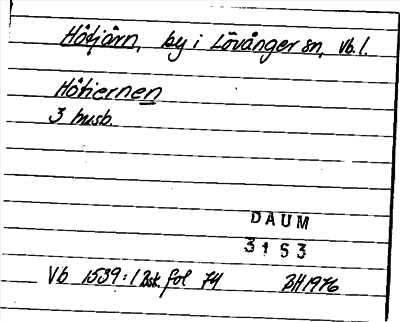 Hötjärn, by i Lövånger sn, Vb. l.
Hötiernen
3 husb.
DAUM
3153
Vb 1539:1 Bsk. fol 74 BH 1976